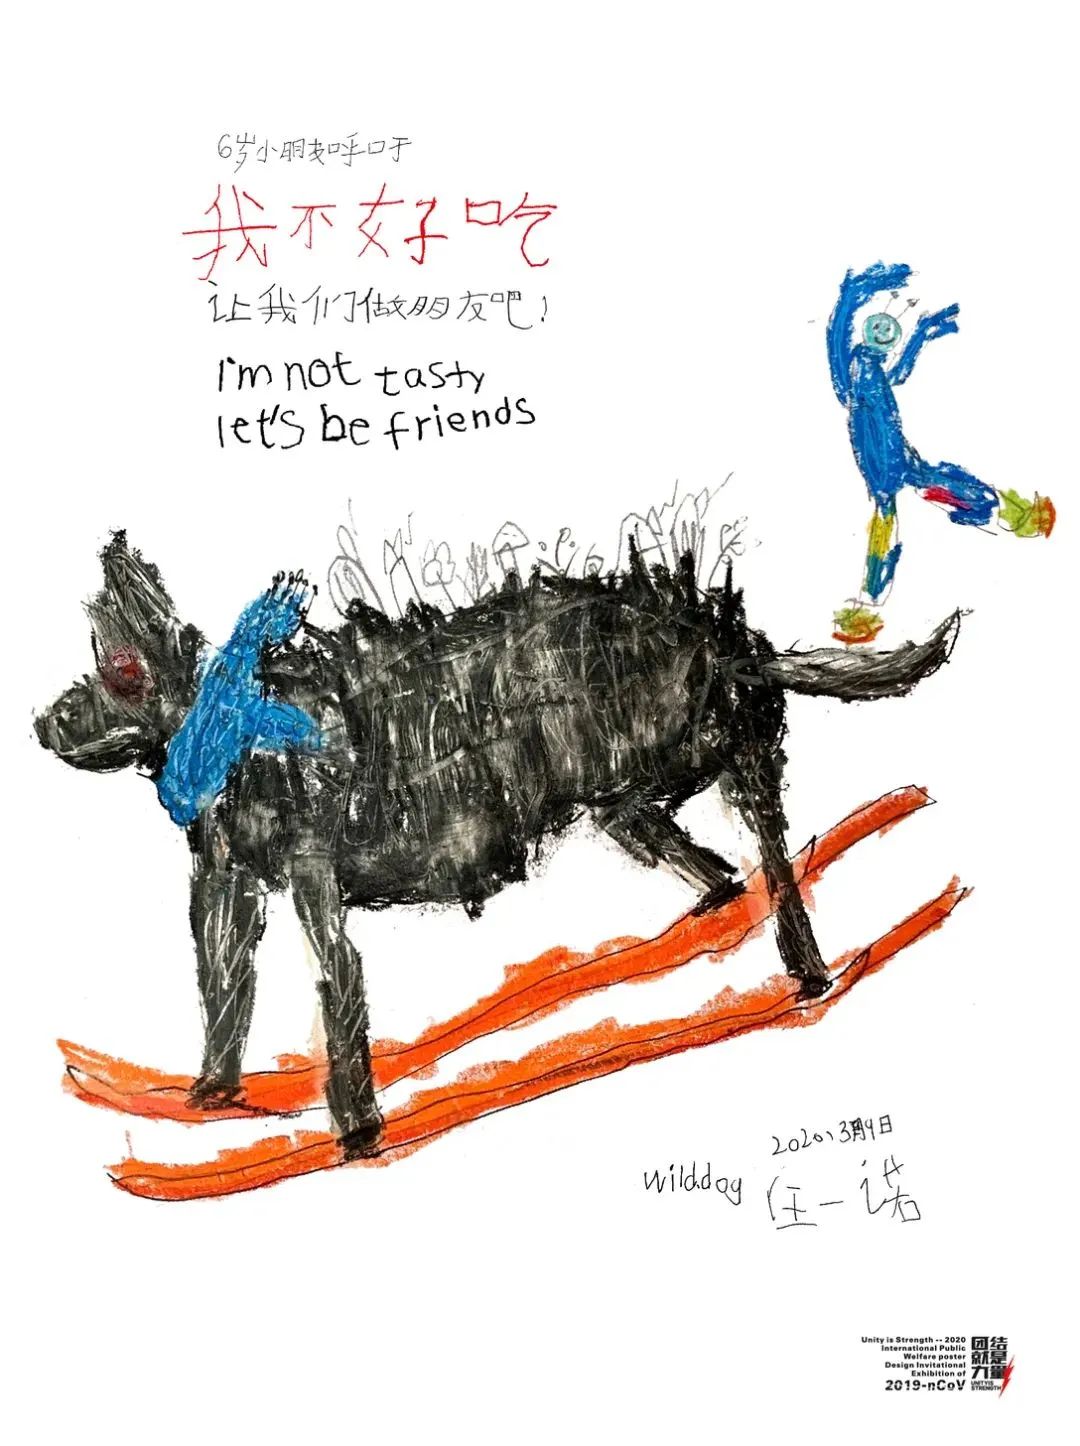 6岁小朋友呼吁
我不好吃
让我们做朋友吧！
I'm not tasty
let's be friends
2020、3月9日
wild.dog 任一诺
Unity is Strength -- 2020
International Public
Welfare poster
Design Invitational
Exhibition of
2019-nCoV
团结
就是
力量
UNITY IS
STRENGTH